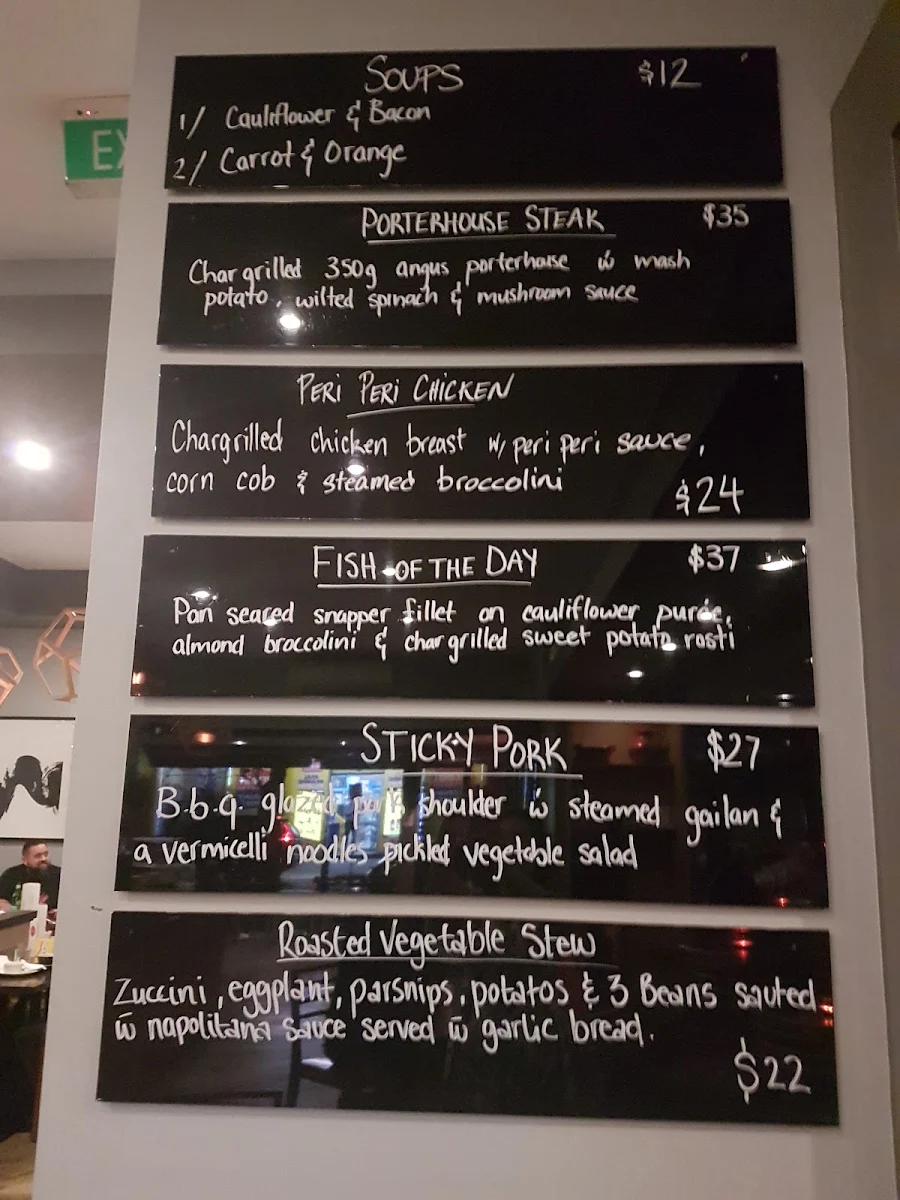 EX
SOUPS $12
1/ Cauliflower & Bacon
2/ Carrot & Orange
PORTERHOUSE STEAK $35
Chargrilled 350g angus porterhouse w̄ mash
potato, wilted spinach & mushroom sauce
PERI PERI CHICKEN
Chargrilled chicken breast w/ peri peri sauce,
corn cob & steamed broccolini
$24
FISH OF THE DAY $37
Pan seared snapper fillet on cauliflower purée,
almond broccolini & chargrilled sweet potato rosti
STICKY PORK $27
B.b.q. glazed pork shoulder w̄ steamed gailan &
a vermicelli noodles pickled vegetable salad
Roasted Vegetable Stew
Zuccini, eggplant, parsnips, potatos & 3 Beans sauted
w̄ napolitana sauce served w̄ garlic bread.
$22